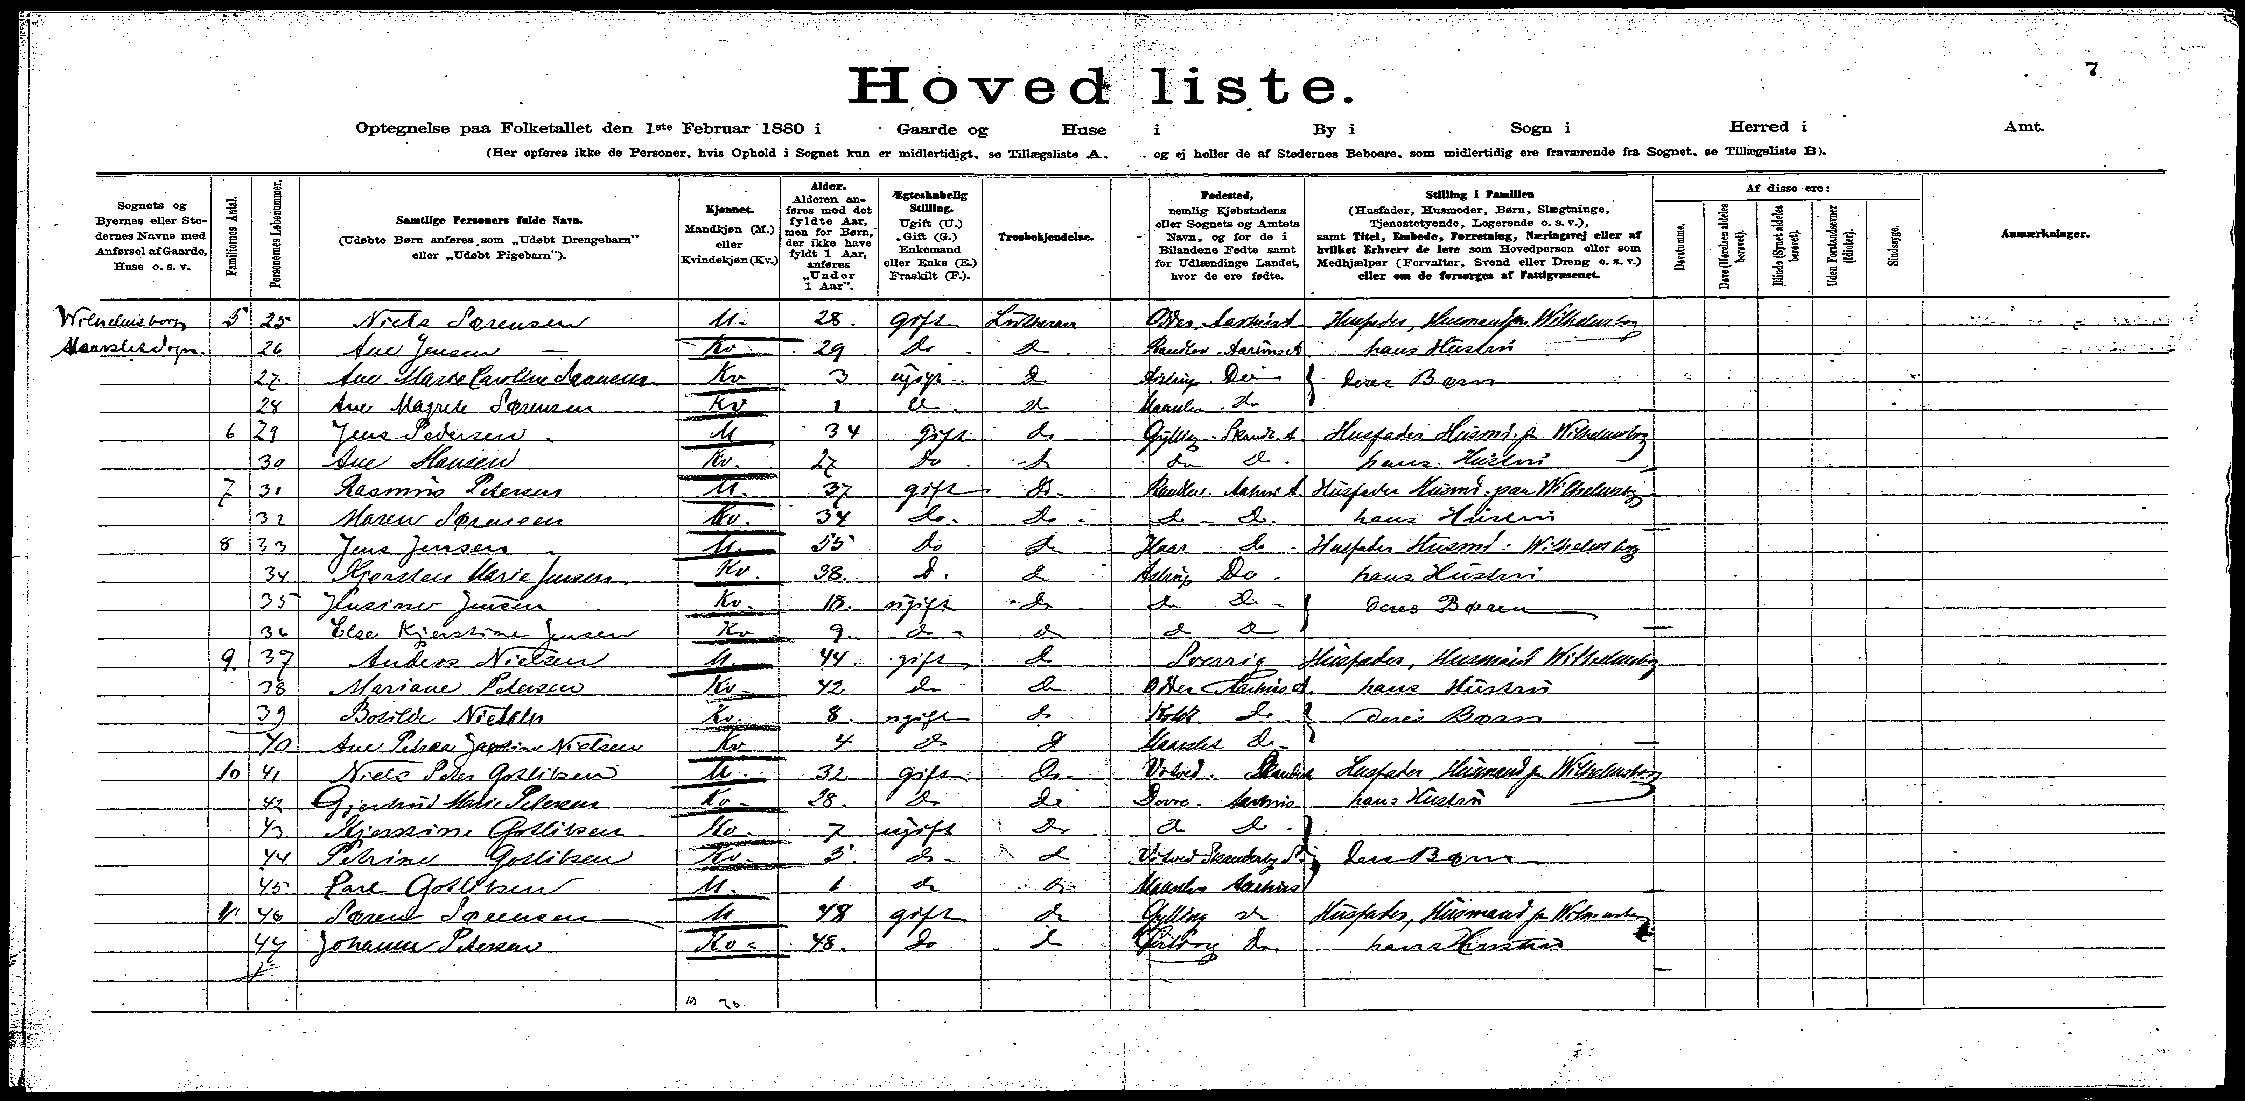 7
Hovedliste.
Optegnelse paa Folketallet den 1ste Februar 1880 i Gaarde og Huse i By i Sogn i Herred i Amt.
(Her opføres ikke de Personer, hvis Ophold i Sognet kun er midlertidigt, se Tillægsliste A, og ej heller de af Stedernes Beboere, som midlertidig ere fraværende fra Sognet, se Tillægsliste B).
Sognets og Byernes eller Stedernes Navne med Anførsel af Gaarde, Huse o. s. v.
Familiernes Antal.
Personernes Løbenummer.
Samtlige Personers fulde Navn.
(Udøbte Børn anføres som „Udøbt Drengebarn" eller „Udøbt Pigebarn").
Kjønnet.
Mandkjøn (M.) eller Kvindekjøn (Kv.)
Alder.
Alderen anføres med det fyldte Aar, men for Børn, der ikke have fyldt 1 Aar, anføres „Under 1 Aar".
Ægteskabelig Stilling.
Ugift (U.) Gift (G.) Enkemand eller Enke (E.) Fraskilt (F.).
Trosbekjendelse.
Fødested,
nemlig Kjøbstadens eller Sognets og Amtets Navn, og for de i Bilandene Fødte samt for Udlændinge Landet, hvor de ere fødte.
Stilling i Familien
(Husfader, Husmoder, Børn, Slægtninge, Tjenestetyende, Logerende o. s. v.), samt Titel, Embede, Forretning, Næringsvej eller af hvilket Erhverv de leve som Hovedperson eller som Medhjælper (Forvalter, Svend eller Dreng o. s. v.) eller om de forsørges af Fattigvæsenet.
Af disse ere:
Døvstumme.
Døve (Hørelsen aldeles berøvet).
Blinde (Synet aldeles berøvet).
Uden Forstandsevner (Idioter).
Sindssyge.
Anmærkninger.
Wilhelmsborg 5 25 Niels Sørensen M. 28. gift Lutheran Odder Aarhus A Husfader, Husmand Wilhelmsborg
Maarslet Sogn. 26 Ane Jensen Kv 29 do d Randlev Aarhus A hans Hustru
27 Ane Marie Caroline Kv 3 ugift d Astrup Do deres Børn
28 Ane Magrete Sørensen Kv 1 d do Maarslet do
6 29 Jens Pedersen M 34 gift do Gylling Skand. A Husfader Husmd. p. Wilhelmsborg
30 Ane Hansen Kv. 27 Do d do D hans Hustru
7 31 Rasmus Petersen M. 37 gift D. Randlev Aarhus A Husfader Husmd. paa Wilhelmsborg
32 Maren Sørensen Kv. 34 do. do. do D. hans Hustru
8 33 Jens Jensen M. 55 do do do Husfader Husmd. Wilhelmsborg
34 Kjersten Marie Jensen Kv. 38. D. d Astrup Do hans Hustru
35 Jensine Jensen Kv. 18. ugift do do Do deres Børn
36 Else Kjerstine Jensen Kv 9. do do do D
9. 37 Anders Nielsen M. 44. gift do Sverrig Husfader, Husmand Wilhelmsborg
38 Mariane Petersen Kv 42 do do Odder Aarhus A hans Hustru
39 Botilde Nielsen Kv. 8. ugift do do deres Børn
40 Ane Nielsen Kv 4 do d Maarslet do
10 41 Niels Peter Gotlibsen M. 32 gift do Vitved Husfader, Husmand p. Wilhelmsborg
42 Gjertrud Marie Petersen Kv. 28. Do do Aarhus hans Hustru
43 Kjerstine Gotlibsen Kv. 7 ugift do do do
44 Petrine Gotlibsen Kv. 5 do d Vitved deres Børn
45 Gotlibsen M. 1 do do Maarslet Aarhus
11 46 Søren Sørensen M 48 gift do Gylling do Husfader, Husmand p.
47 Johanne Petersen Kv. 48. do d do hans Hustru